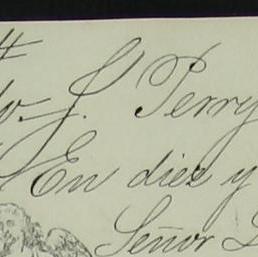 J. Perry
En diez y
Señor